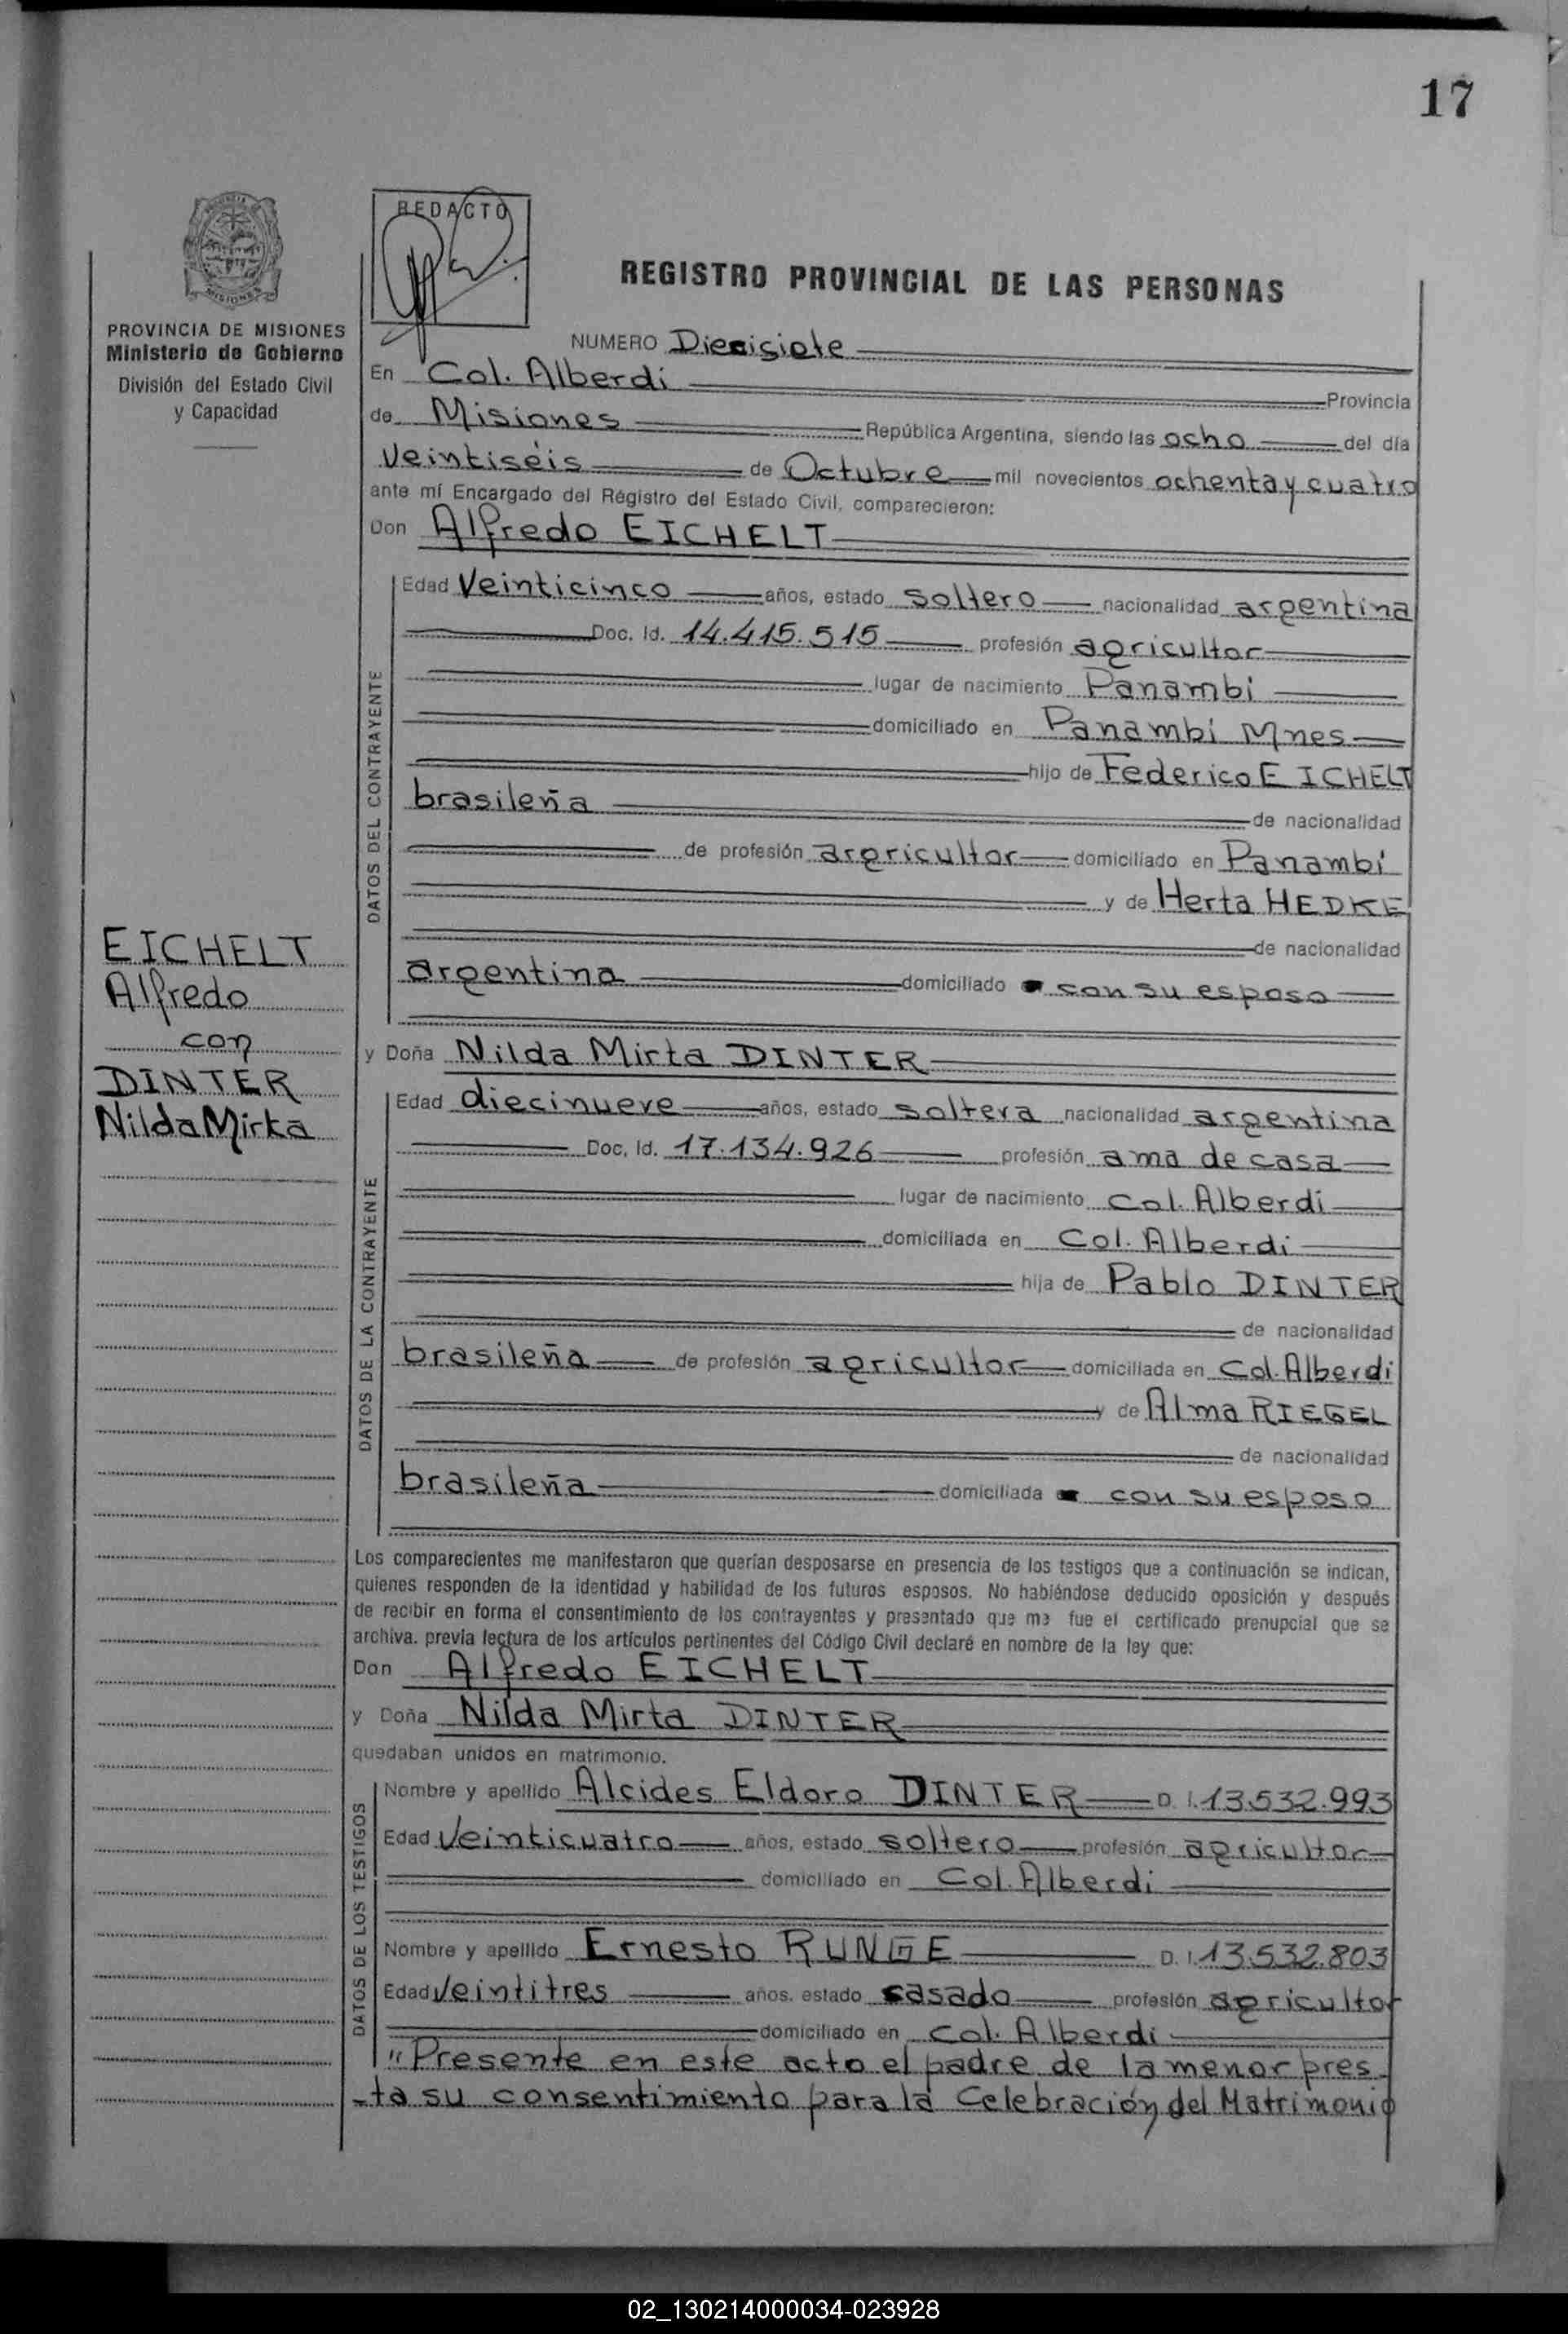 17
MISIONES
REDACTO
REGISTRO PROVINCIAL DE LAS PERSONAS
PROVINCIA DE MISIONES
Ministerio de Gobierno
División del Estado Civil
y Capacidad
NUMERO Diecisiete
En Col. Alberdi Provincia
de Misiones República Argentina, siendo las ocho del día
veintiséis de Octubre mil novecientos ochenta y cuatro
ante mí Encargado del Registro del Estado Civil, comparecieron:
Don Alfredo EICHELT
DATOS DEL CONTRAYENTE
Edad Veinticinco años, estado soltero nacionalidad argentina
Doc. Id. 14.415.515 profesión agricultor
lugar de nacimiento Panambi
domiciliado en Panambi Mnes
hijo de Federico EICHELT
brasileña de nacionalidad
de profesión argricultor domiciliado en Panambi
y de Herta HEDKE
de nacionalidad
argentina domiciliado con su esposo
EICHELT
Alfredo
con
DINTER
Nilda Mirta
y Doña Nilda Mirta DINTER
DATOS DE LA CONTRAYENTE
Edad diecinueve años, estado soltera nacionalidad argentina
Doc. Id. 17.134.926 profesión ama de casa
lugar de nacimiento Col. Alberdi
domiciliada en Col. Alberdi
hija de Pablo DINTER
de nacionalidad
brasileña de profesión agricultor domiciliada en Col. Alberdi
y de Alma RIEGEL
de nacionalidad
brasileña domiciliada con su esposo
Los comparecientes me manifestaron que querían desposarse en presencia de los testigos que a continuación se indican,
quienes responden de la identidad y habilidad de los futuros esposos. No habiéndose deducido oposición y después
de recibir en forma el consentimiento de los contrayentes y presentado que me fue el certificado prenupcial que se
archiva. previa lectura de los artículos pertinentes del Código Civil declaré en nombre de la ley que:
Don Alfredo EICHELT
y Doña Nilda Mirta DINTER
quedaban unidos en matrimonio.
DATOS DE LOS TESTIGOS
Nombre y apellido Alcides Eldoro DINTER D. I. 13.532.993
Edad Veinticuatro años, estado soltero profesión agricultor
domiciliado en Col. Alberdi
Nombre y apellido Ernesto RUNGE D. I. 13.532.803
Edad Veintitres años. estado casado profesión agricultor
domiciliado en Col. Alberdi
"Presente en este acto el padre de la menor pres
-ta su consentimiento para la Celebración del Matrimonio
02_130214000034-023928